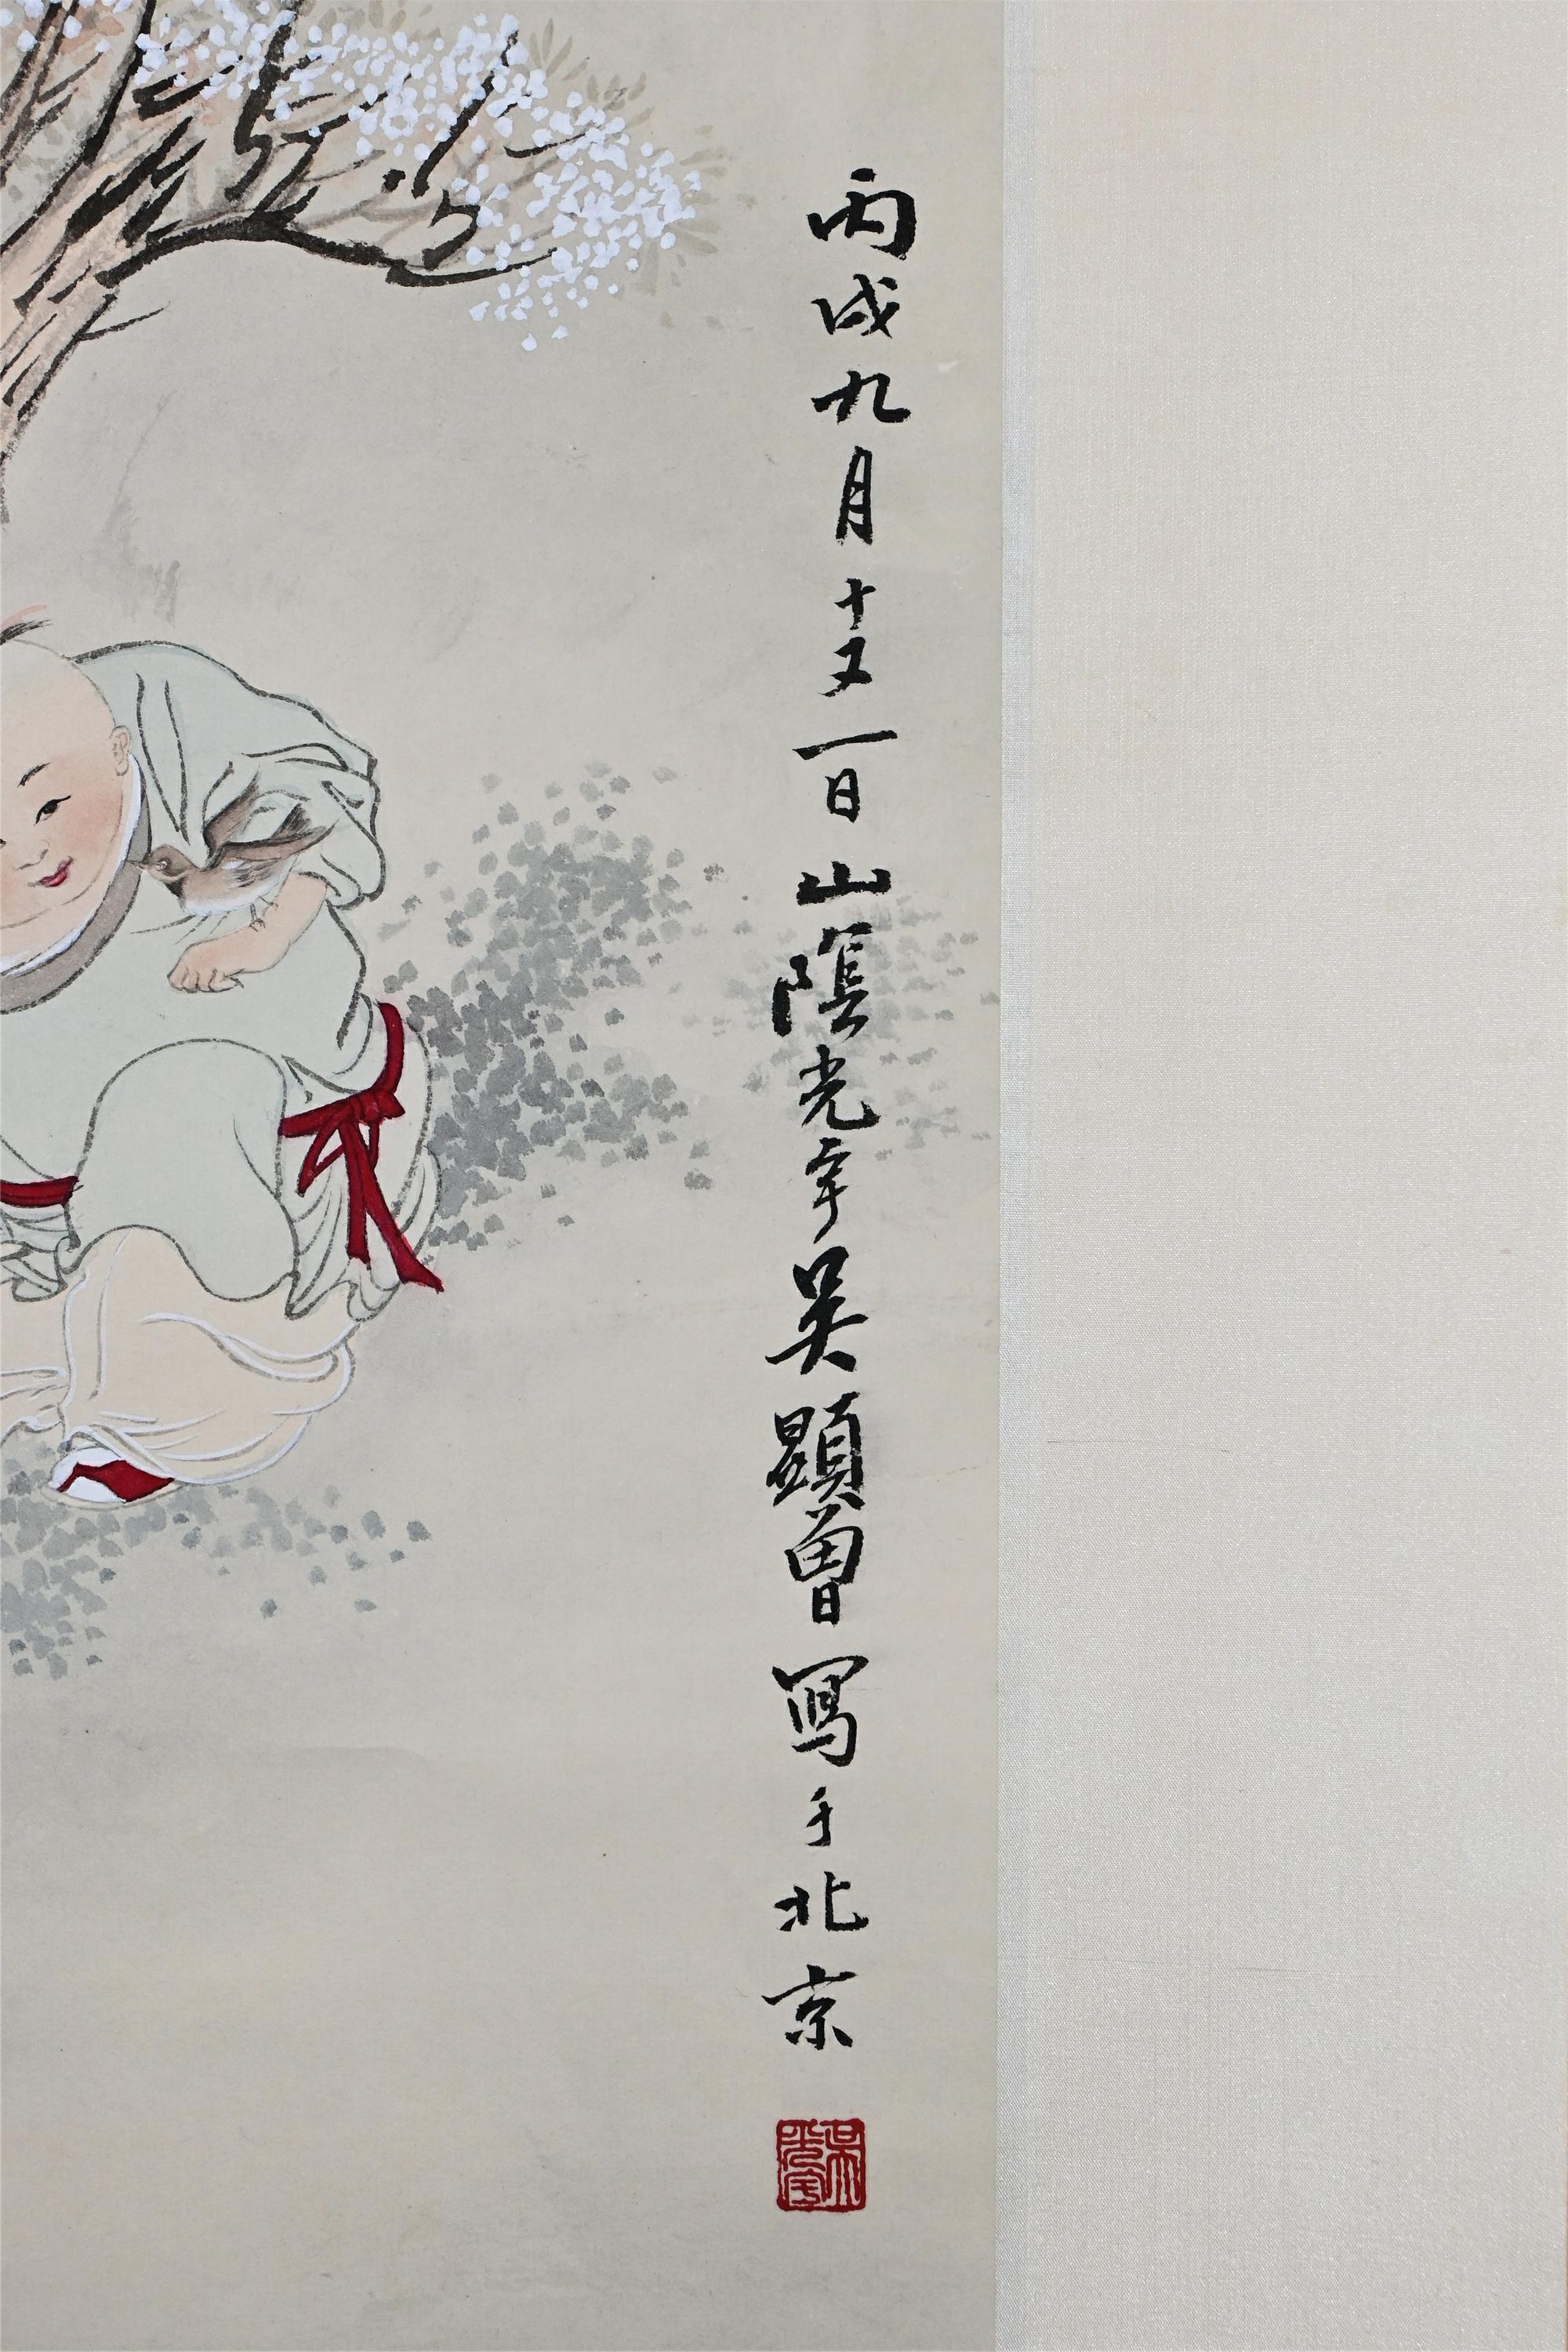 丙戌九月十又一日山陰光宇吳顯曾寫于北京